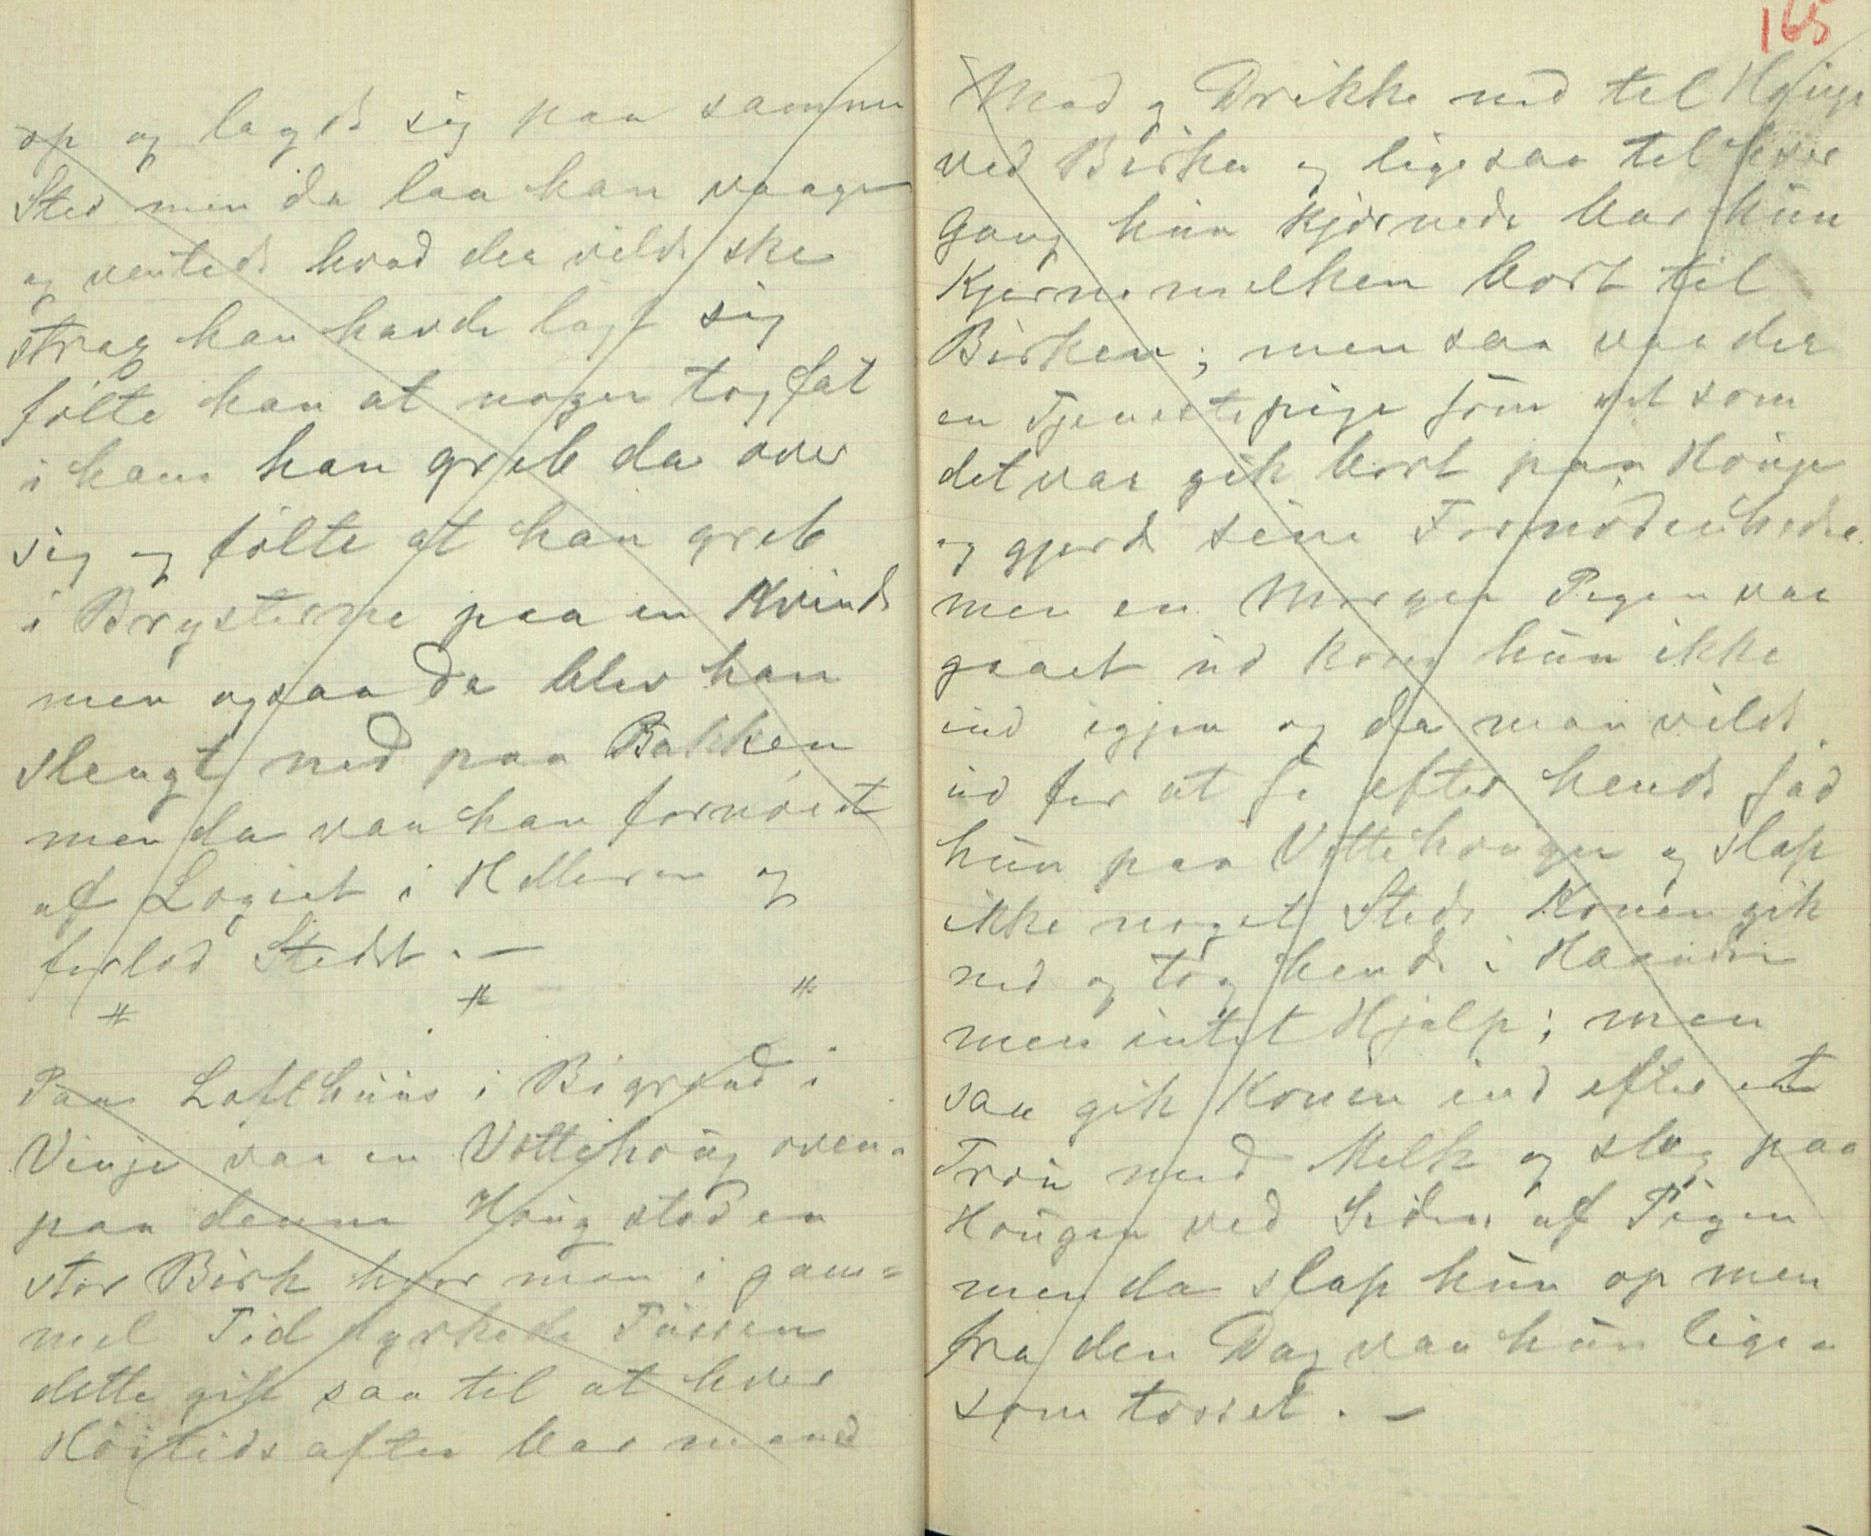 op og lagde sig paa samme
Sted men da laa han vaagen
og ventede hvad der vilde ske
strax han havde lagt sig
følte han at nogen tog fat
i ham han greb da over
sig og følte at han greb
i Brysterne paa en Kvinde
men ogsaa da blev han
slengt ned paa Bakken
men da var han fornøiet
af Logiet i Helleren og
forlod Stedet. —
〃 〃 〃
Paa Lofthuus i Bøgrend i
Vinje var en Vettehoug oven-
paa denne Houg stod en
stor Birk hvor man i gam=
mel Tid dyrkede Tussen
dette gik saa til at hver
Høitidsaften bar mand
165
Mad og Drikke ned til Houge
ved Birken og ligesaa til hver
Gang hun kjørnede bar hun
Kjernemelken bort til
Birken; men saa var der
en Tjenestepige som
det var gik bort paa Hougen
og gjorde sine Fornødenheder
men en Morgen Pigen var
gaaet ud kom hun ikke
ind igjen og da man vilde
ud for at se efter hende sad
hun paa Vettehougen og slap
ikke noget Steds Konen gik
ned og tog hende i Haanden
men intet Hjalp; men
saa gik Konen ind efter et
Trøu med Melk og slog paa
Hougen ved Siden af Pigen
men da slap hun op men
fra den Dag var hun lige-
som tosset. —